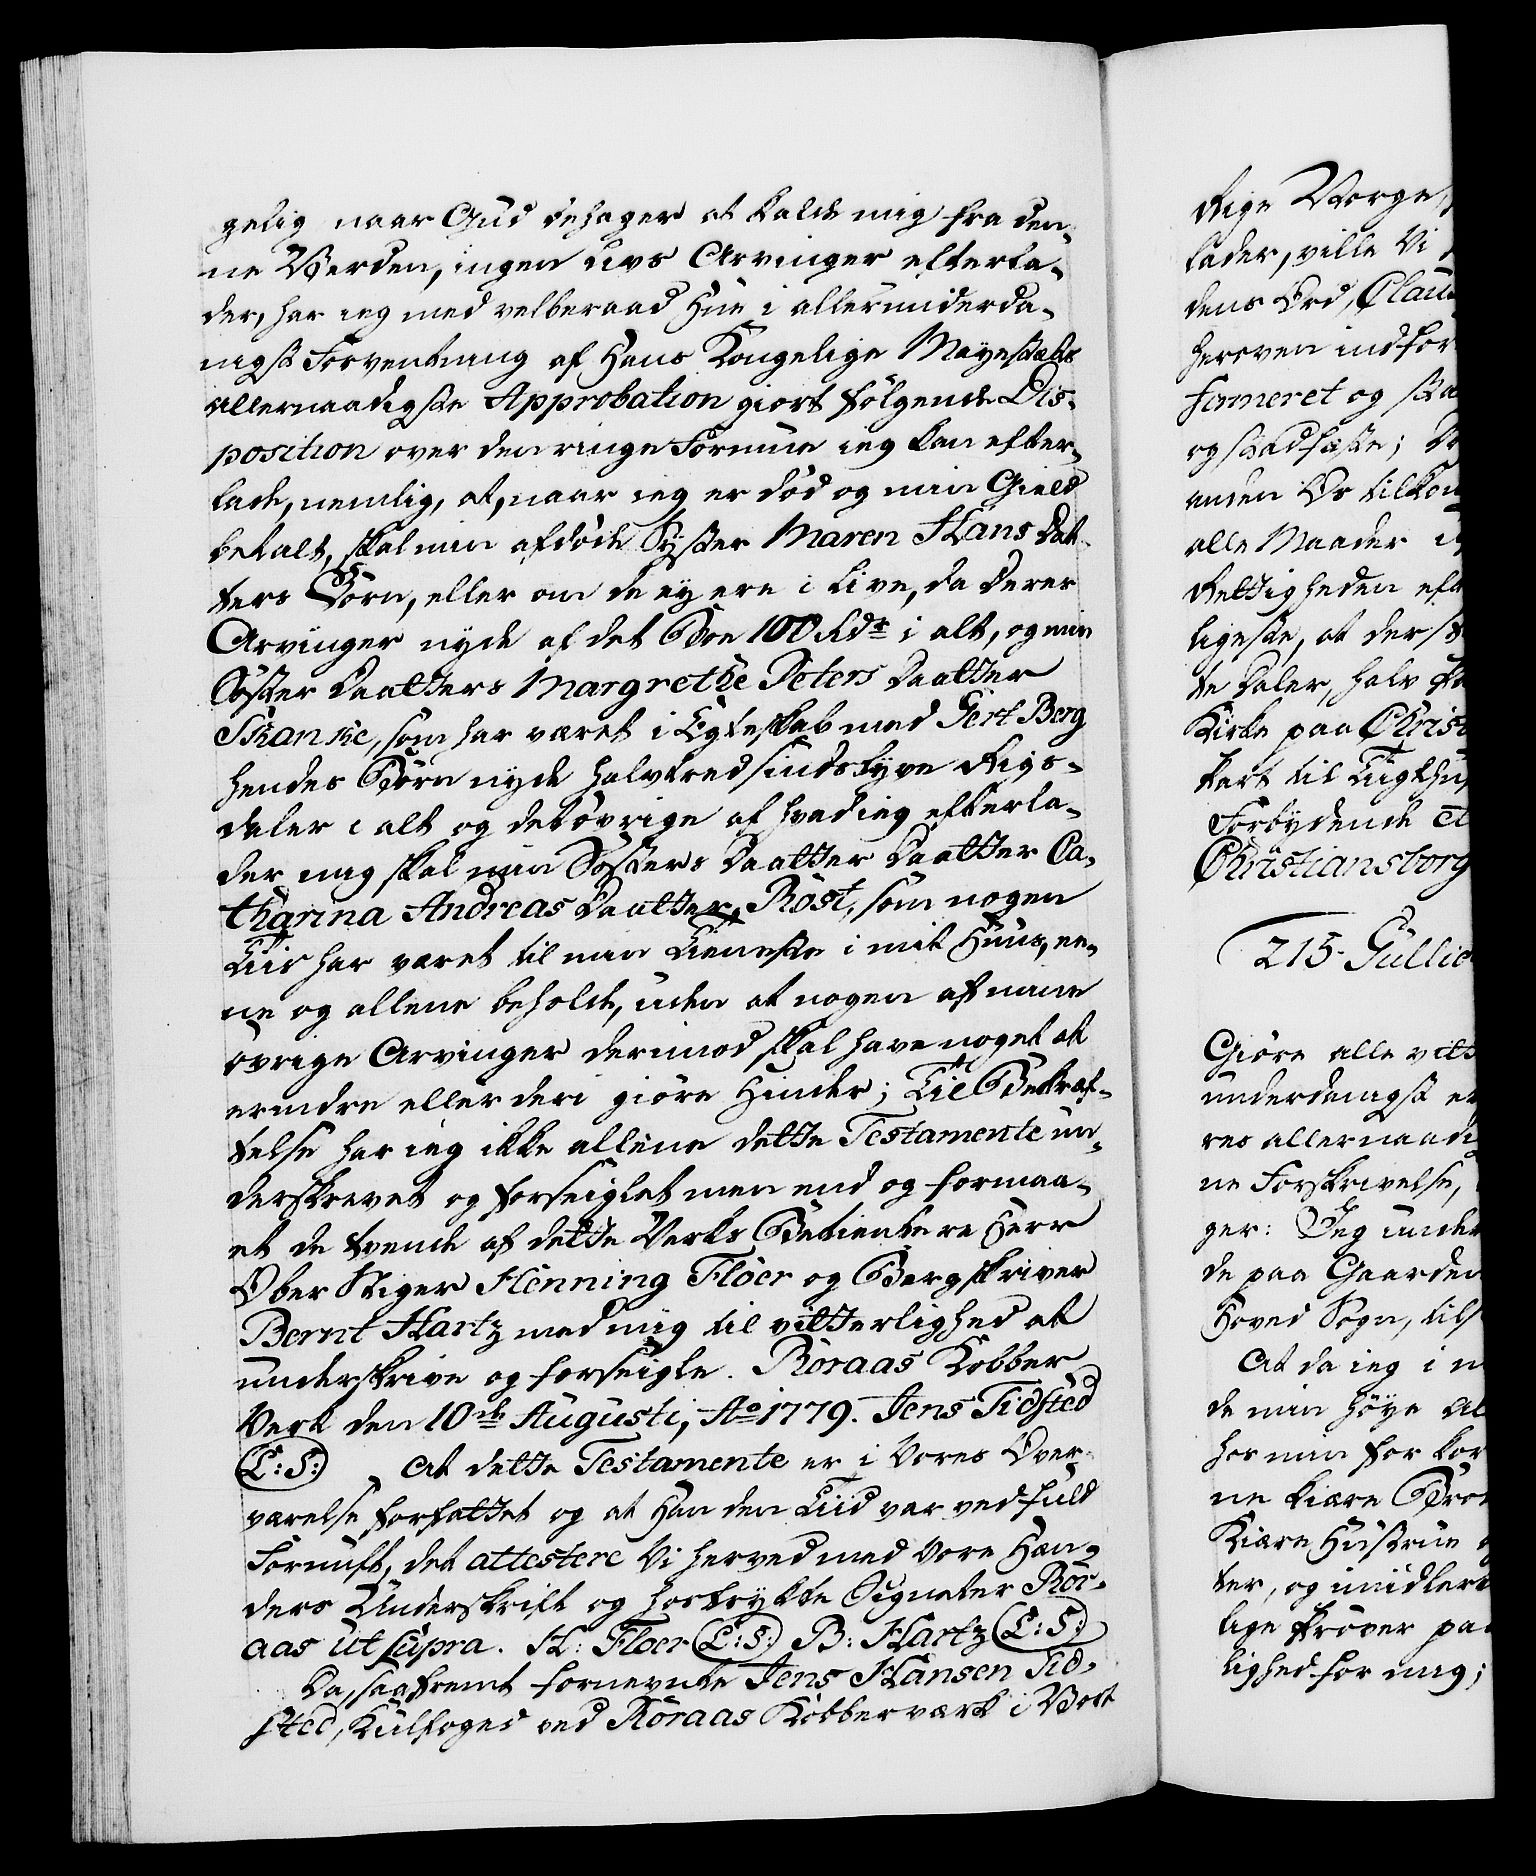 gelig naar Gud behager at kalde mig fra den-
ne Verden, ingen Livs Arvinger efterla-
der, har ieg med velberaad Hue i allerunderda-
nigst Forventning af Hans Kongelige Mayestæts
allernaadigste Approbation giort følgende Dis-
position over den ringe Formue ieg kan efter-
lade, nemlig, at, naar ieg er død og min Gield
betalt, skal min afdøde Syster Maren Hans Dat-
ters Børn, eller om de ey ere i Live, da deres
Arvinger nyde af det Boe 100 Rdr i alt, og min
Søster Daatters Margrethe Peters Daatter
Skanke, som har været i Egteskab med Gert Berg
hendes Børn nyde halvtredsindstyve Rigs-
daler i alt og det øvrige af hvad ieg efterla-
der mig skal min Søsters Daatter Daatter Ca-
tharina Andreas Daatter Røst, som nogen
Tiid har været til min Tieneste i mit Huus, ee-
ne og allene beholde, uden at nogen af mine
øvrige Arvinger derimod skal have noget at
erindre eller deri giøre Hinder; Til Bekræf-
telse har ieg ikke allene dette Testamente un-
derskrevet og forseiglet men end og formaa-
et de tvende af dette Verks Betientere Herr
Ober Stiger Henning Fløer og Bergskriver
Bernt Hartz med mig til vitterlighed at
underskrive og forseigle. Røraas Kobber
Verk den 10de Augusti, Ao 1779. Jens Tidsted
(L:S:) At dette Testamente er i Vores Over-
værelse forfattet og at Han den Tiid var ved fuld
Fornuft, det attestere Vi herved med vore Hæn-
ders Underskrift og hostrykte Signeter Rør-
aas ut supra. H: Fløer (L:S:) B: Hartz (L:S:)
Da, saafremt fornevnte Jens Hansen Tid-
sted, Kulfoged ved Røraas Kobberværk i Vort
Rige Norge,
lader, ville Vi
dens Ord, Clau
heroven indfør
firmeret og sta
og stadfæste;
anden Os tilkom
alle Maader
Rettigheden eft
ligeste, at der st
te Daler, halv
Kirke paa Christ
part til Tugthu
Forbydende
Christiansborg
215. Gullic
Giøre alle vitt
underdanigst er
res allernaadi
ne Forskrivelse,
ger: Jeg under
de paa Gaarden
Hoved Sogn, tils
At da ieg i
de min høye Al
hos min for
ne kiære Bro
Kiære Hustrue
ter, og imidlert
lige Prøver paa
lighed for mig;